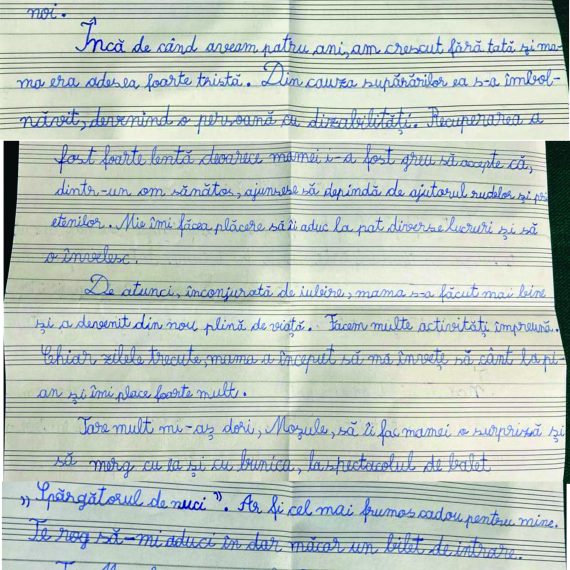 noi.
Încă de când aveam patru ani, am crescut fără tată și ma-
ma era adesea foarte tristă. Din cauza supărărilor ea s-a îmbol-
năvit, devenind o persoană cu dizabilități. Recuperarea a
fost foarte lentă deoarece mamei i-a fost greu să accepte că,
dintr-un om sănătos, ajunsese să depindă de ajutorul rudelor și pri
etenilor. Mie îmi făcea plăcere să îi aduc la pat diverse lucruri și să
o învelesc.
De atunci, înconjurată de iubire, mama s-a făcut mai bine
și a devenit din nou plină de viață. Facem multe activități împreună.
Chiar zilele trecute, mama a început să mă învețe să cânt la pi-
an și îmi place foarte mult.
Tare mult mi-aș dori, Moșule, să îi fac mamei o surpriză și
să merg cu ea și cu bunica, la spectacolul de balet
„Spărgătorul de nuci”. Ar fi cel mai frumos cadou pentru mine.
Te rog să-mi aduci în dar măcar un bilet de intrare.